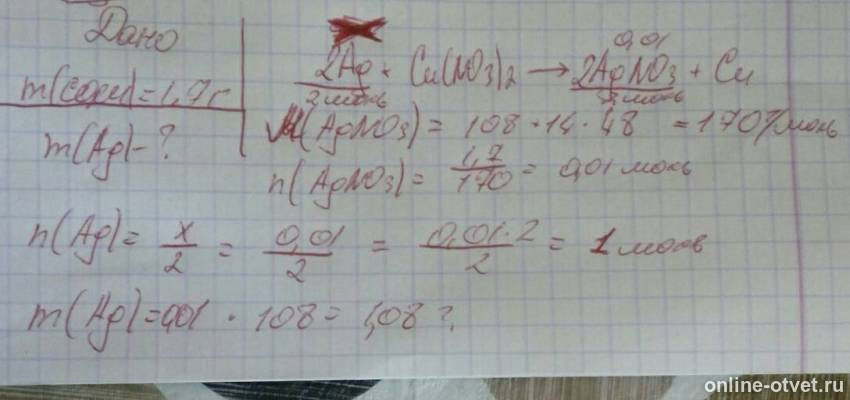 Дано
m(соли)=1,7г
m(Ag)-?
0,01
2Ag + Cu(NO3)2 → 2AgNO3 + Cu
2 моль 2 моль
M(AgNO3) = 108+14+48 = 170г/моль
n(AgNO3) = 1,7/170 = 0,01 моль
n(Ag) = x/2 = 0,01/2 = 0,01·2/2 = 1 моль
m(Ag)=0,01 · 108 = 1,08 г.
online-otvet.ru